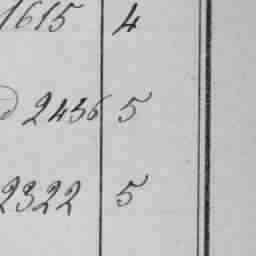 1615 4
2436 5
2322 5